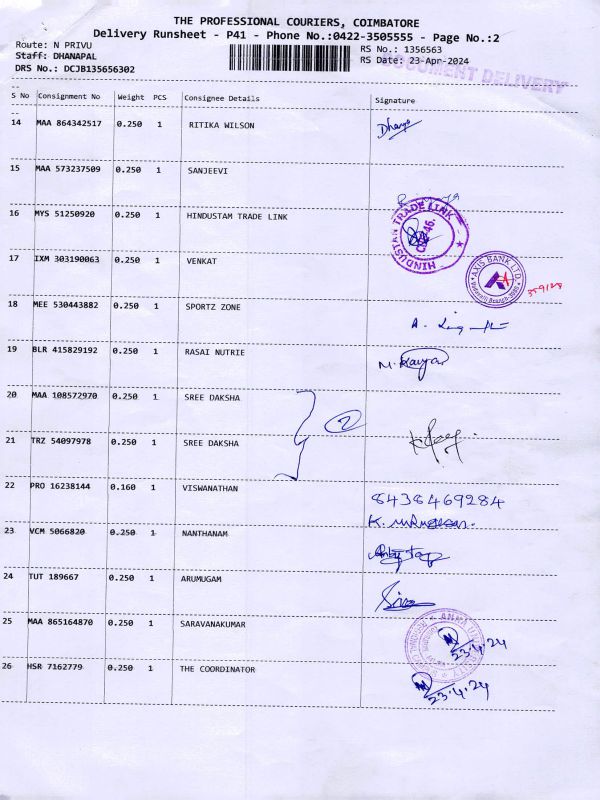 THE PROFESSIONAL COURIERS, COIMBATORE
Delivery Runsheet - P41 - Phone No.:0422-3505555 - Page No.:2
Route: N PRIVU RS No.: 1356563
Staff: DHANAPAL RS Date: 23-Apr-2024
DRS No.: DCJB135656302
DOCUMENT DELIVERY
S No Consignment No Weight PCS Consignee Details Signature
14 MAA 864342517 0.250 1 RITIKA WILSON
15 MAA 573237509 0.250 1 SANJEEVI
16 MYS 51250920 0.250 1 HINDUSTAM TRADE LINK
HINDUSTAN TRADE LINK
17 IXM 303190063 0.250 1 VENKAT
AXIS BANK LTD
18 MEE 530443882 0.250 1 SPORTZ ZONE
19 BLR 415829192 0.250 1 RASAI NUTRIE
20 MAA 108572970 0.250 1 SREE DAKSHA
2
21 TRZ 54097978 0.250 1 SREE DAKSHA
22 PRO 16238144 0.160 1 VISWANATHAN
8438469284
23 VCM 5066820 0.250 1 NANTHANAM
24 TUT 189667 0.250 1 ARUMUGAM
25 MAA 865164870 0.250 1 SARAVANAKUMAR
23.4.24
26 HSR 7162779 0.250 1 THE COORDINATOR
23.4.24